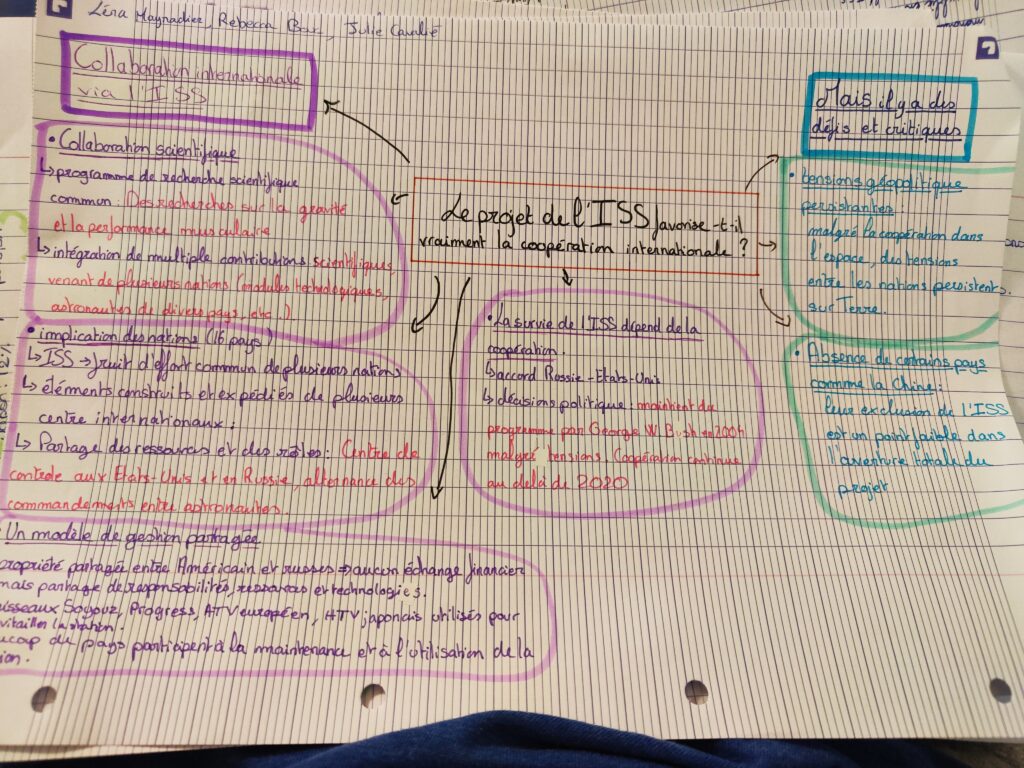 Léna Maynadier, Rebecca, Julie Cavalié
Collaboration internationale
via l'ISS
Mais il y a des
défis et critiques
Le projet de l'ISS favorise-t-il
vraiment la coopération internationale ?
• Collaboration scientifique
↳ programme de recherche scientifique
commun : Des recherches sur la gravité
et la performance musculaire
↳ intégration de multiple contributions scientifiques,
venant de plusieurs nations (modules technologiques,
astronautes de divers pays, etc.)
• implication des nations (16 pays)
↳ ISS → fruit d'effort commun de plusieurs nations
↳ éléments construits et expédiés de plusieurs
centre internationaux.
↳ Partage des ressources et des rôles : Centre de
controle aux Etats-Unis et en Russie, alternance des
commandements entre astronautes.
• Un modèle de gestion partagée
propriété partagée entre Américain et russes ⇒ aucun échange financier
mais partage de responsabilités, ressources et technologies.
isseaux Soyouz, Progress, ATV européen, HTV japonais utilisés pour
vitailler la station.
ucoup de pays participent à la maintenance et à l'utilisation de la
ion.
• La survie de l'ISS dépend de la
coopération.
↳ accord Russie-Etats-Unis
↳ décisions politique : maintient du
programme par George W. Bush en 2004
malgré tensions. Coopération continue
au delà de 2020
• tensions géopolitique
persistantes :
malgré la coopération dans
l'espace, des tensions
entre les nations persistents
sur Terre.
• Absence de certains pays
comme la Chine :
leur exclusion de l'ISS
est un point faible dans
l'aventure totale du
projet